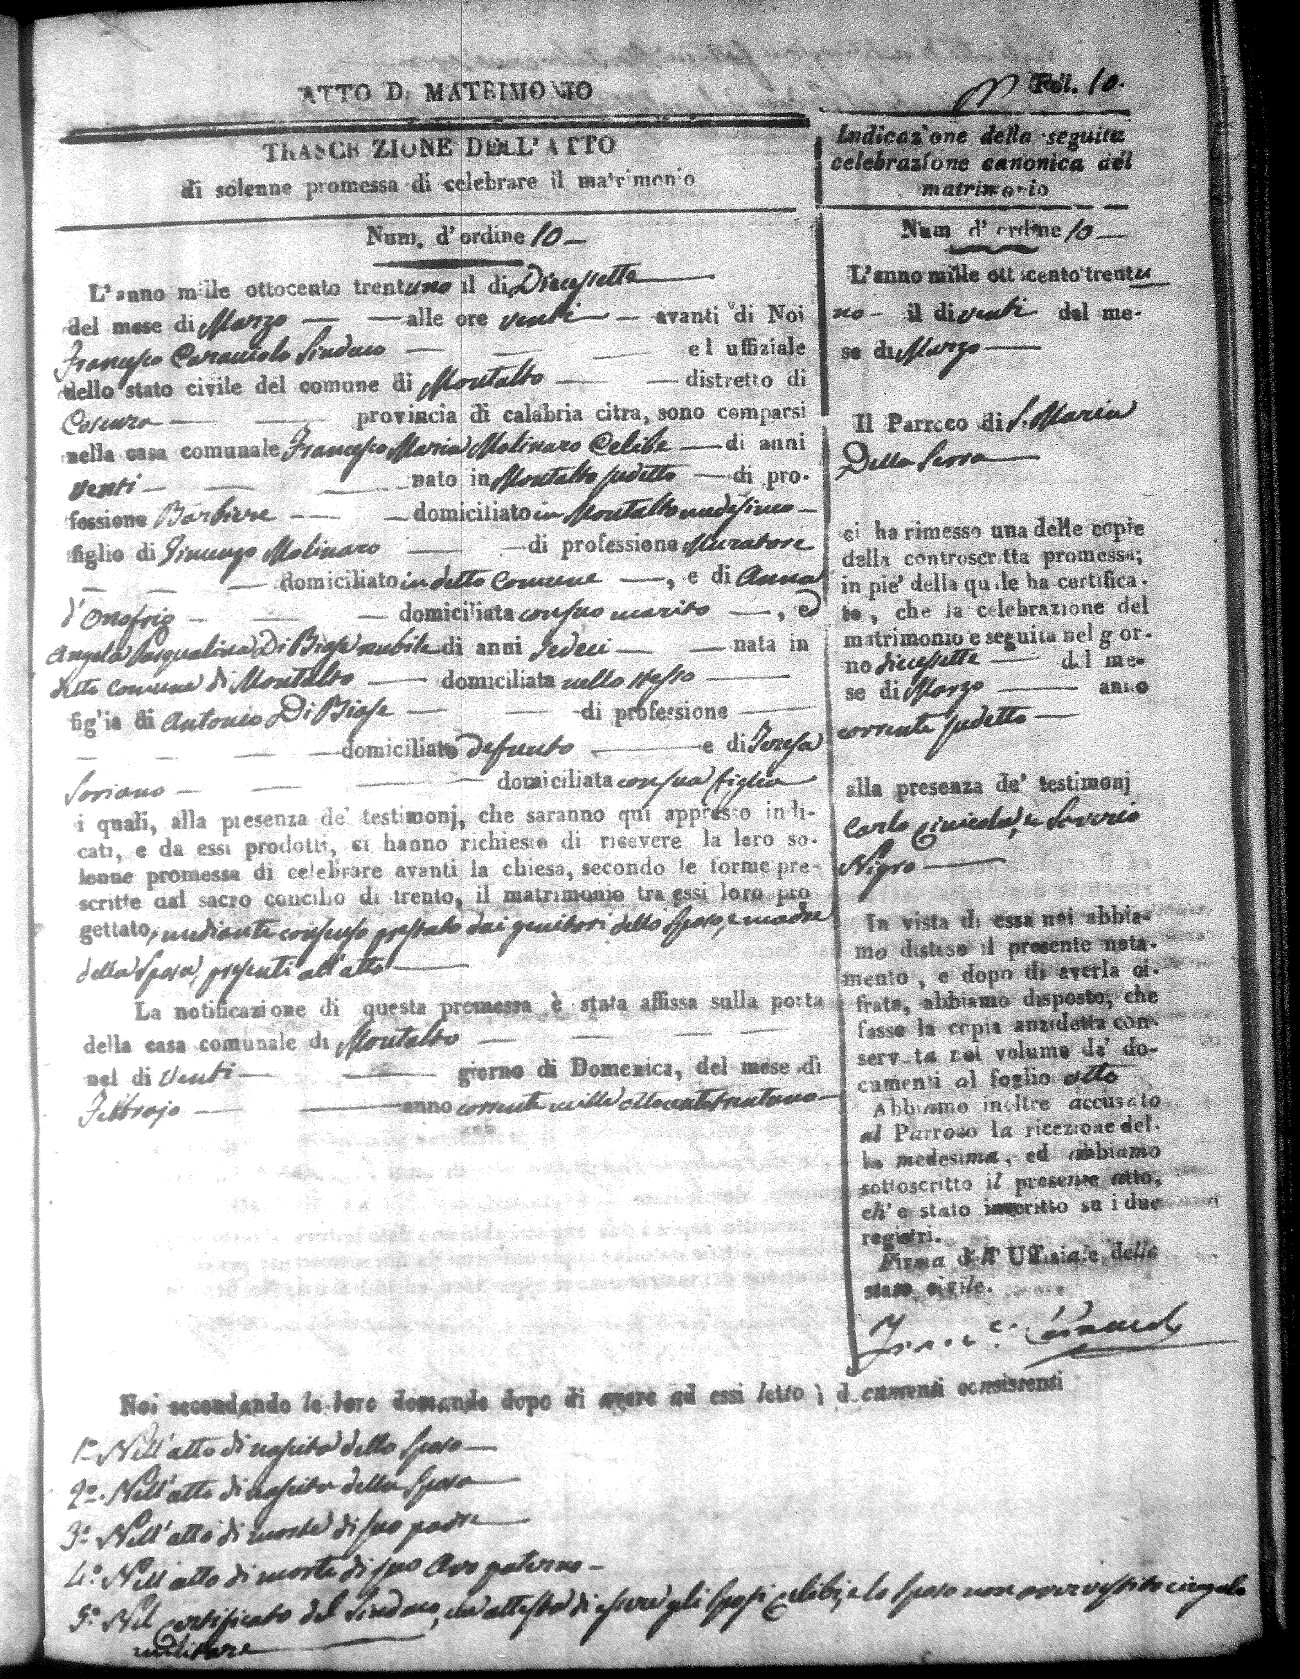 ATTO DI MATRIMONIO
Fol. 10.
TRASCRIZIONE DELL'ATTO
di solenne promessa di celebrare il matrimonio
Num. d'ordine 10
L'anno mille ottocento trentuno il dì Diecessette
del mese di Marzo alle ore venti avanti di Noi
Francesco Caracciolo Sindaco ed uffiziale
dello stato civile del comune di Montalto distretto di
Cosenza provincia di calabria citra, sono comparsi
nella casa comunale Francesco Maria Molinaro Celibe di anni
venti nato in Montalto sudetto di pro-
fessione Barbiere domiciliato in Montalto medesimo
figlio di Vincenzo Molinaro di professione Muratore
domiciliato in detto Comune, e di Anna
d'Onofrio domiciliata con suo marito, e
Angela Pasqualina Di Biase nubile di anni sedeci nata in
detto comune di Montalto domiciliata nello stesso
figlia di Antonio Di Biase di professione
domiciliato defunto e di Teresa
Soriano domiciliata con sua figlia
i quali, alla presenza de' testimonj, che saranno qui appresso indi-
cati, e da essi prodotti, ci hanno richiesto di ricevere la loro so-
lenne promessa di celebrare avanti la chiesa, secondo le forme pre-
scritte dal sacro concilio di trento, il matrimonio tra essi loro pro
gettato, mediante consenso prestato dai genitori dello Sposo, e madre
della Sposa, presenti all'atto
La notificazione di questa promessa è stata affissa sulla porta
della casa comunale di Montalto
nel dì venti giorno di Domenica, del mese di
Febbrajo anno corrente mille ottocento trentuno
Indicazione della seguita
celebrazione canonica del
matrimonio
Num d'ordine 10
L'anno mille ottocento trentu
no il dì venti del me-
se di Marzo
Il Parroco di S. Maria
Della Serra
ci ha rimesso una delle copie
della controscritta promessa;
in pie' della quale ha certifica-
to, che la celebrazione del
matrimonio e seguita nel gior-
no diecessette del me-
se di Marzo anno
corrente sudetto
alla presenza de' testimonj
Carlo e Saverio
Nigro
In vista di essa noi abbia-
mo disteso il presente nota-
mento, e dopo di averla ci-
frata, abbiamo disposto, che
fosse la copia anzidetta con-
servata nel volume de' do-
cumenti al foglio otto
Abbiamo inoltre accusato
al Parroco la ricezione del-
la medesima, ed abbiamo
sottoscritto il presente atto,
ch'e stato inscritto su i due
registri.
Firma dell'Uffiziale dello
stato civile.
Noi secondando le loro domande dopo di avere ad essi letto i documenti consistenti
1º Nell'atto di nascita dello Sposo
2º Nell'atto di nascita della Sposa
3º Nell'atto di morte di suo padre
4º Nell'atto di morte di suo Avo paterno
5º Nel certificato del Sindaco, che attesta di essere gli Sposi celibi, e lo Sposo non aver vestito cingolo
militare